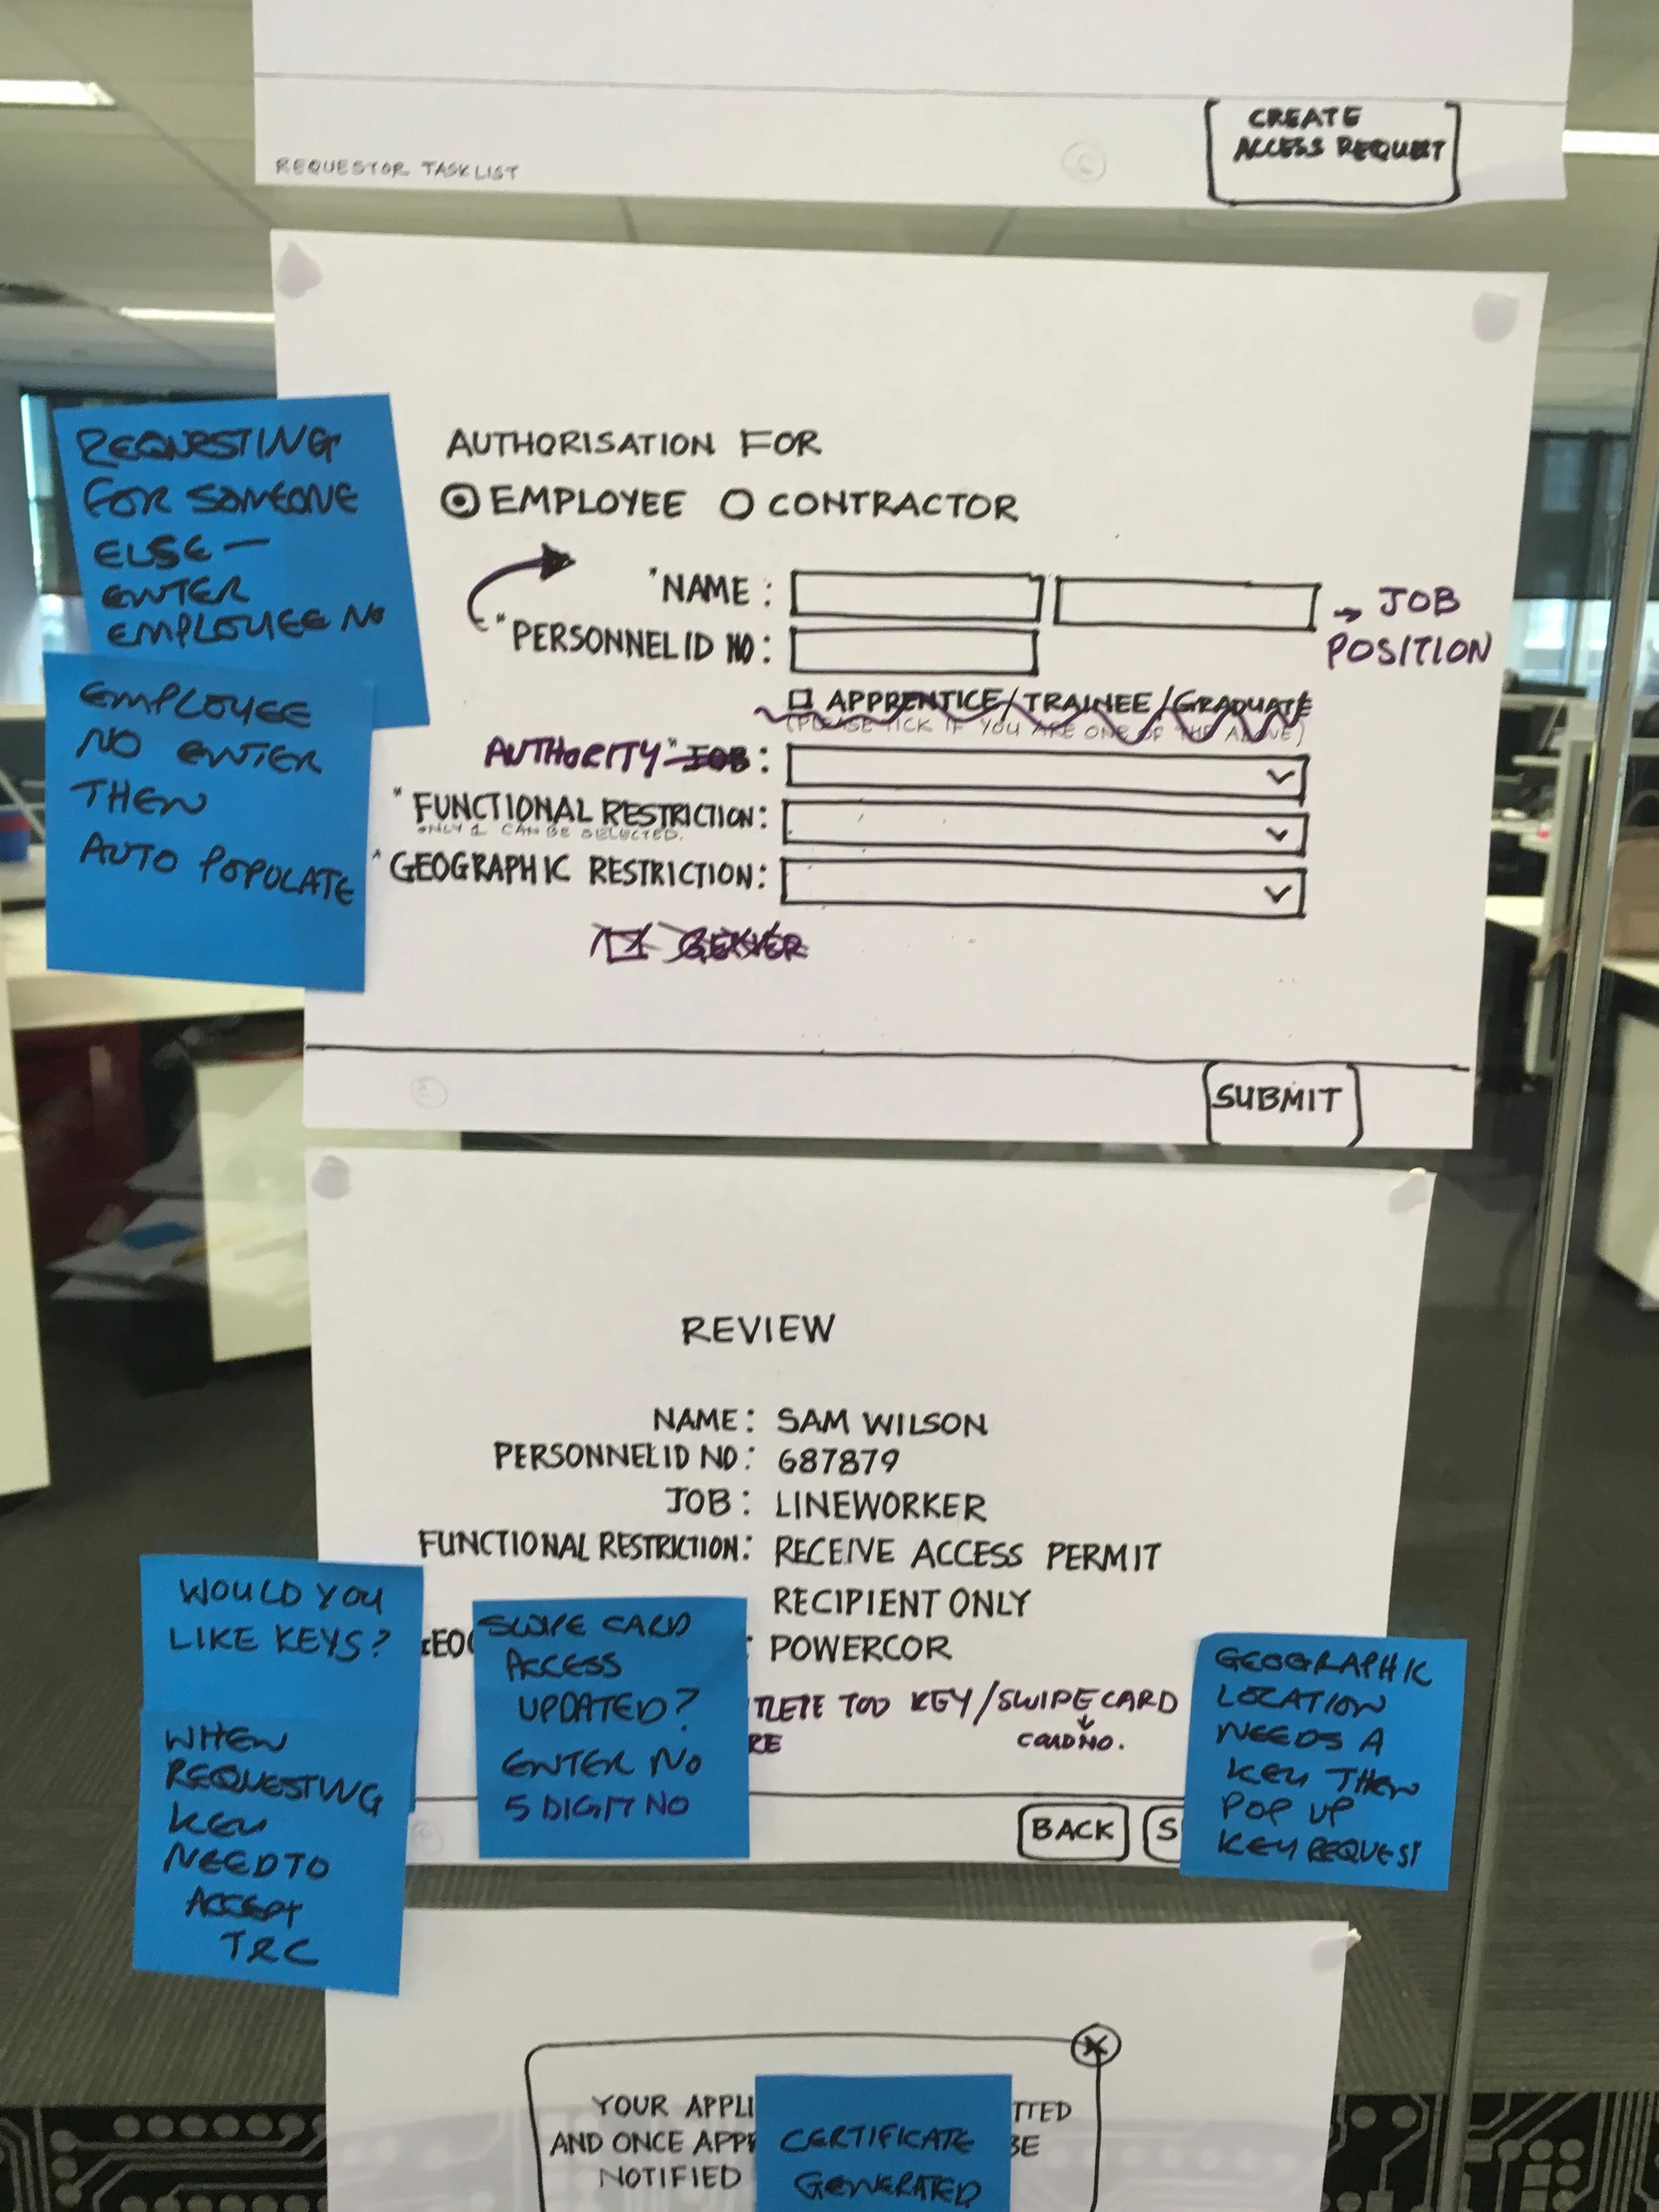 CREATE
ACCESS REQUEST
REQUESTOR TASKLIST
REQUESTING
FOR SOMEONE
ELSE —
ENTER
EMPLOYEE NO
EMPLOYEE
NO ENTER
THEN
AUTO POPULATE
AUTHORISATION FOR
EMPLOYEE CONTRACTOR
*NAME :
→ JOB
POSITION
*PERSONNEL ID NO :
APPRENTICE/TRAINEE/GRADUATE
(PLEASE TICK IF YOU ARE ONE OF THE ABOVE)
AUTHORITY * JOB :
* FUNCTIONAL RESTRICTION:
ONLY 1 CAN BE SELECTED.
* GEOGRAPHIC RESTRICTION:
SUBMIT
REVIEW
NAME: SAM WILSON
PERSONNEL ID NO: 687879
JOB: LINEWORKER
FUNCTIONAL RESTRICTION: RECEIVE ACCESS PERMIT
RECIPIENT ONLY
GEO : POWERCOR
TOO KEY/SWIPE CARD
CARD NO.
BACK S
WOULD YOU
LIKE KEYS?
WHEN
REQUESTING
KEY
NEED TO
ACCEPT
T&C
SWIPE CARD
ACCESS
UPDATED?
ENTER NO
5 DIGIT NO
GEOGRAPHIC
LOCATION
NEEDS A
KEY THEN
POP UP
KEY REQUEST
YOUR APPLI TTED
AND ONCE APP BE
NOTIFIED
CERTIFICATE
GENERATED